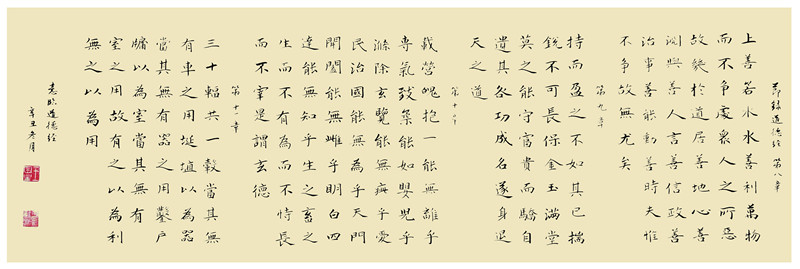 節録道德經 第八章
上善若水水善利萬物
而不爭處衆人之所惡
故幾於道居善地心善
淵與善人言善信政善
治事善能動善時夫惟
不爭故無尤矣
第九章
持而盈之不如其已揣
銳不可長保金玉滿堂
莫之能守富貴而驕自
遺其咎功成名遂身退
天之道
第十章
載營魄抱一能無離乎
專氣致柔能如嬰兒乎
滌除玄覽能無疵乎愛
民治國能無為乎天門
開闔能無雌乎明白四
達能無知乎生之畜之
生而不有為而不恃長
而不宰是謂玄德
第十一章
三十輻共一轂當其無
有車之用埏埴以為器
當其無有器之用鑿戶
牖以為室當其無有
室之用故有之以為利
無之以為用
老聃道德經
辛丑冬月